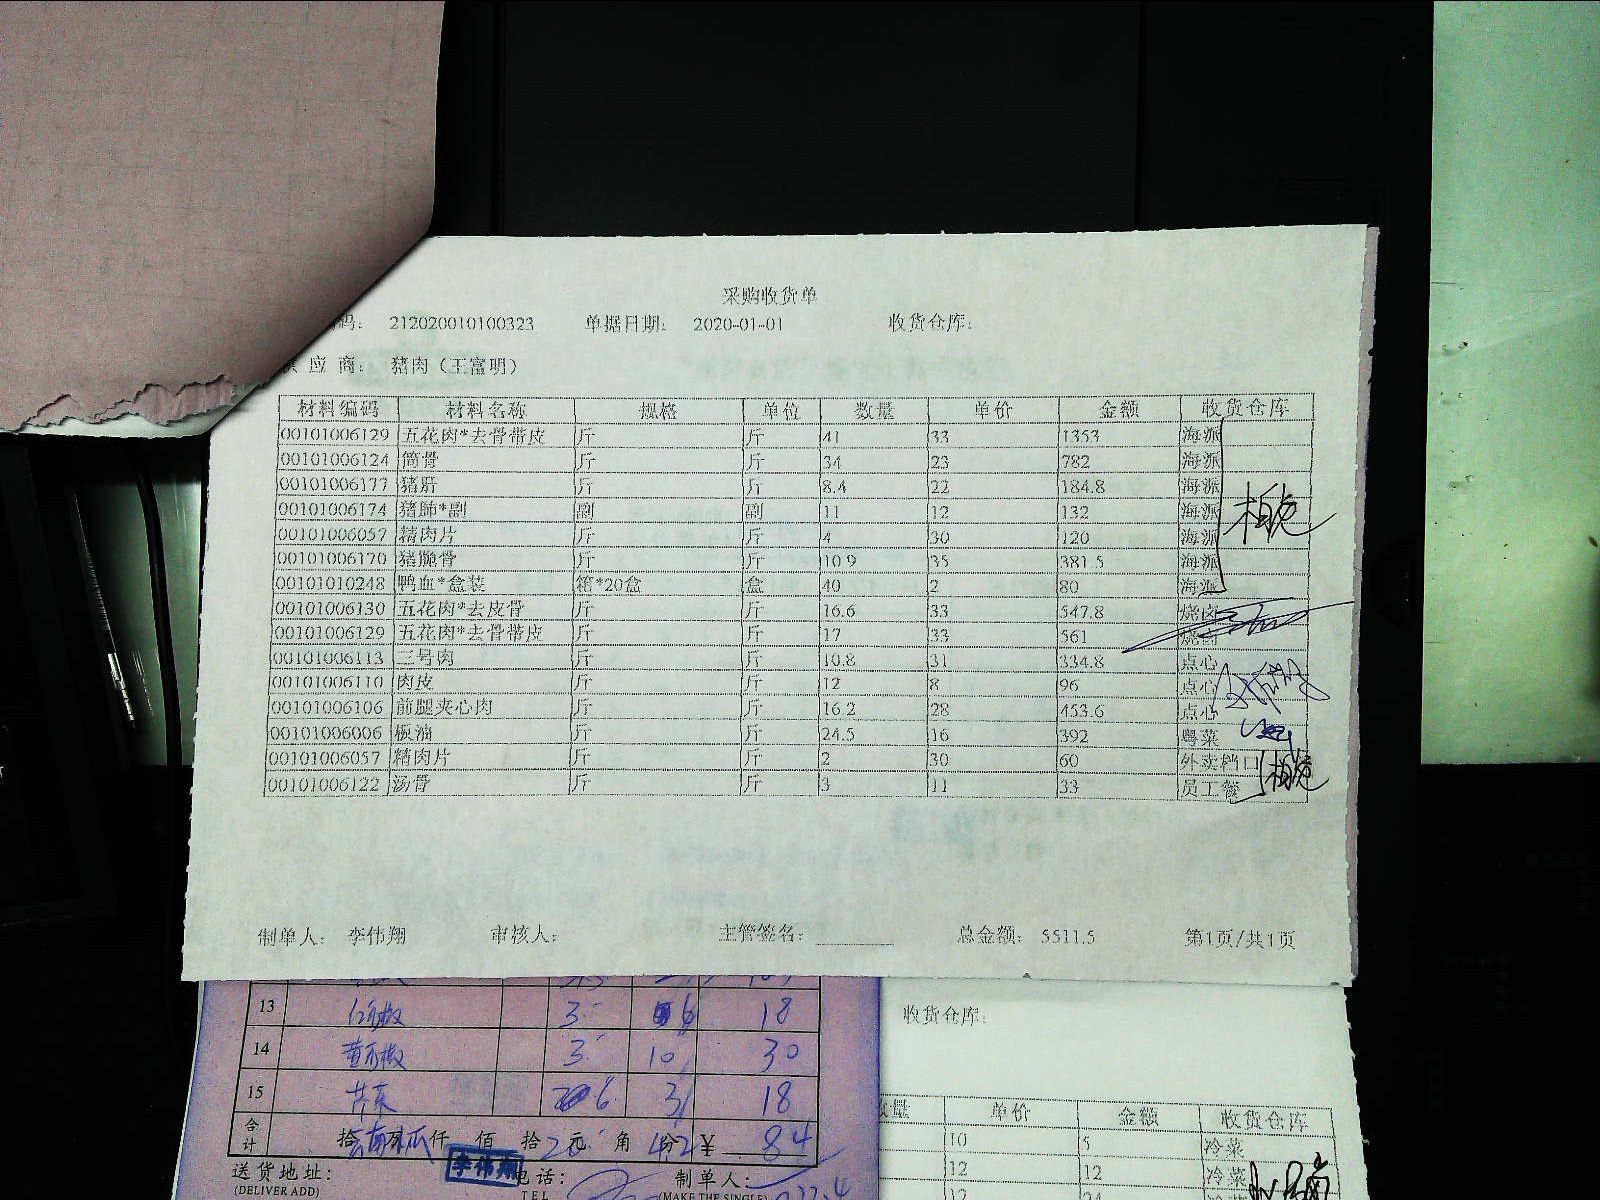 采购收货单
码: 212020010100323 单据日期: 2020-01-01 收货仓库:
应 商: 猪肉（王富明）
材料编码 材料名称 规格 单位 数量 单价 金额 收货仓库
00101006129 五花肉*去骨带皮 斤 斤 41 33 1353 海派
00101006124 筒骨 斤 斤 34 23 782 海派
00101006177 猪肝 斤 斤 8.4 22 184.8 海派
00101006174 猪肺*副 副 副 11 12 132 海派
00101006057 精肉片 斤 斤 4 30 120 海派
00101006170 猪腿骨 斤 斤 10.9 35 381.5 海派
00101010248 鸭血*盒装 箱*20盒 盒 40 2 80 海派
00101006130 五花肉*去皮骨 斤 斤 16.6 33 547.8 烧卤
00101006129 五花肉*去骨带皮 斤 斤 17 33 561
00101006113 三号肉 斤 斤 10.8 31 334.8 点心
00101006110 肉皮 斤 斤 12 8 96 点心
00101006106 前腿夹心肉 斤 斤 16.2 28 453.6 点心
00101006006 板油 斤 斤 24.5 16 392 粤菜
00101006057 精肉片 斤 斤 2 30 60 外卖档口
00101006122 汤骨 斤 斤 3 11 33 员工餐
制单人: 李伟翔 审核人: 主管签名: 总金额: 5511.5 第1页/共1页
13 3 6 18
14 3 10 30
15 6 3 18
合计 拾 万 仟 佰 拾 元 角 分 ¥ 84
李伟翔
送货地址: 电话: 制单人:
(DELIVER ADD) TEL (MAKE THE SINGLE)
收货仓库:
数量 单价 金额 收货仓库
10 5 冷菜
12 12 冷菜
12 24